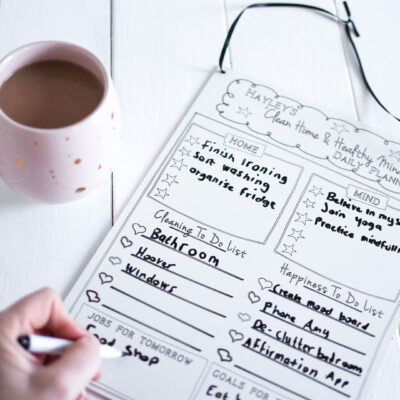 HAYLEY'S
Clean Home & Healthy Mind
DAILY PLANN
HOME
Finish Ironing
Sort washing
organise fridge
MIND
Believe in mys
Join yoga
Practice mindfuln
Cleaning To Do List
Bathroom
Hoover
Windows
Happiness To Do List
Create mood board
Phone Amy
De-clutter bedroom
Affirmation App
JOBS FOR TOMORROW
Food shop
GOALS FOR
Eat